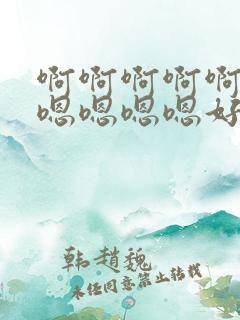 啊啊啊啊啊
嗯嗯嗯嗯好
韩赵魏
未经同意禁止转载